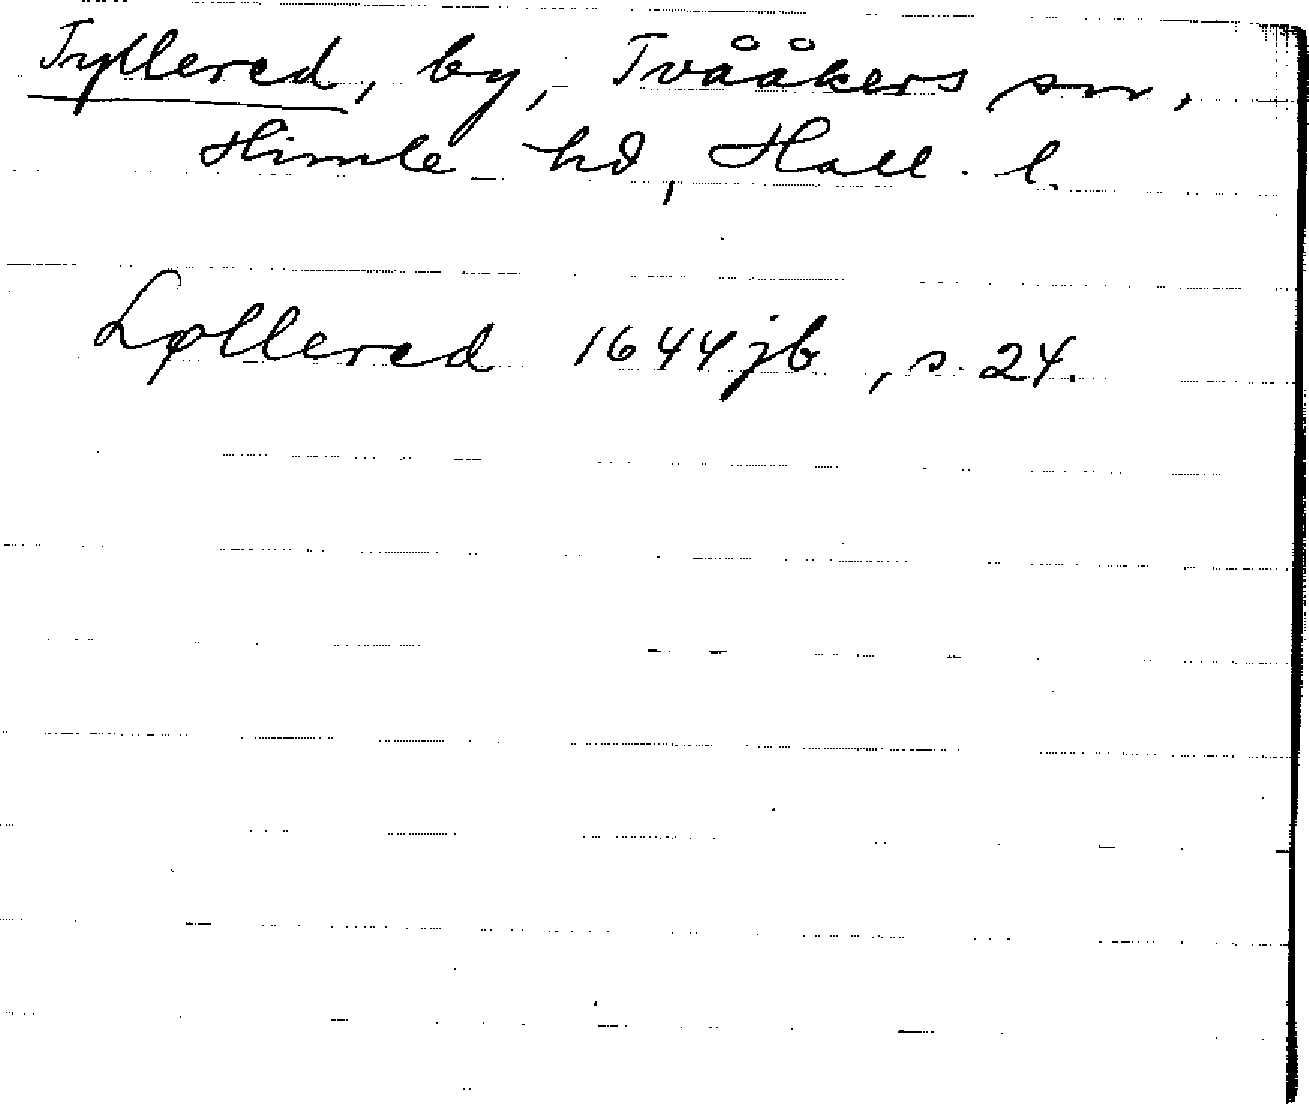 Tyllered, by, Tvååkers sn,
Himle hd, Hall. l.
Løllered 1644 jb, s. 24.